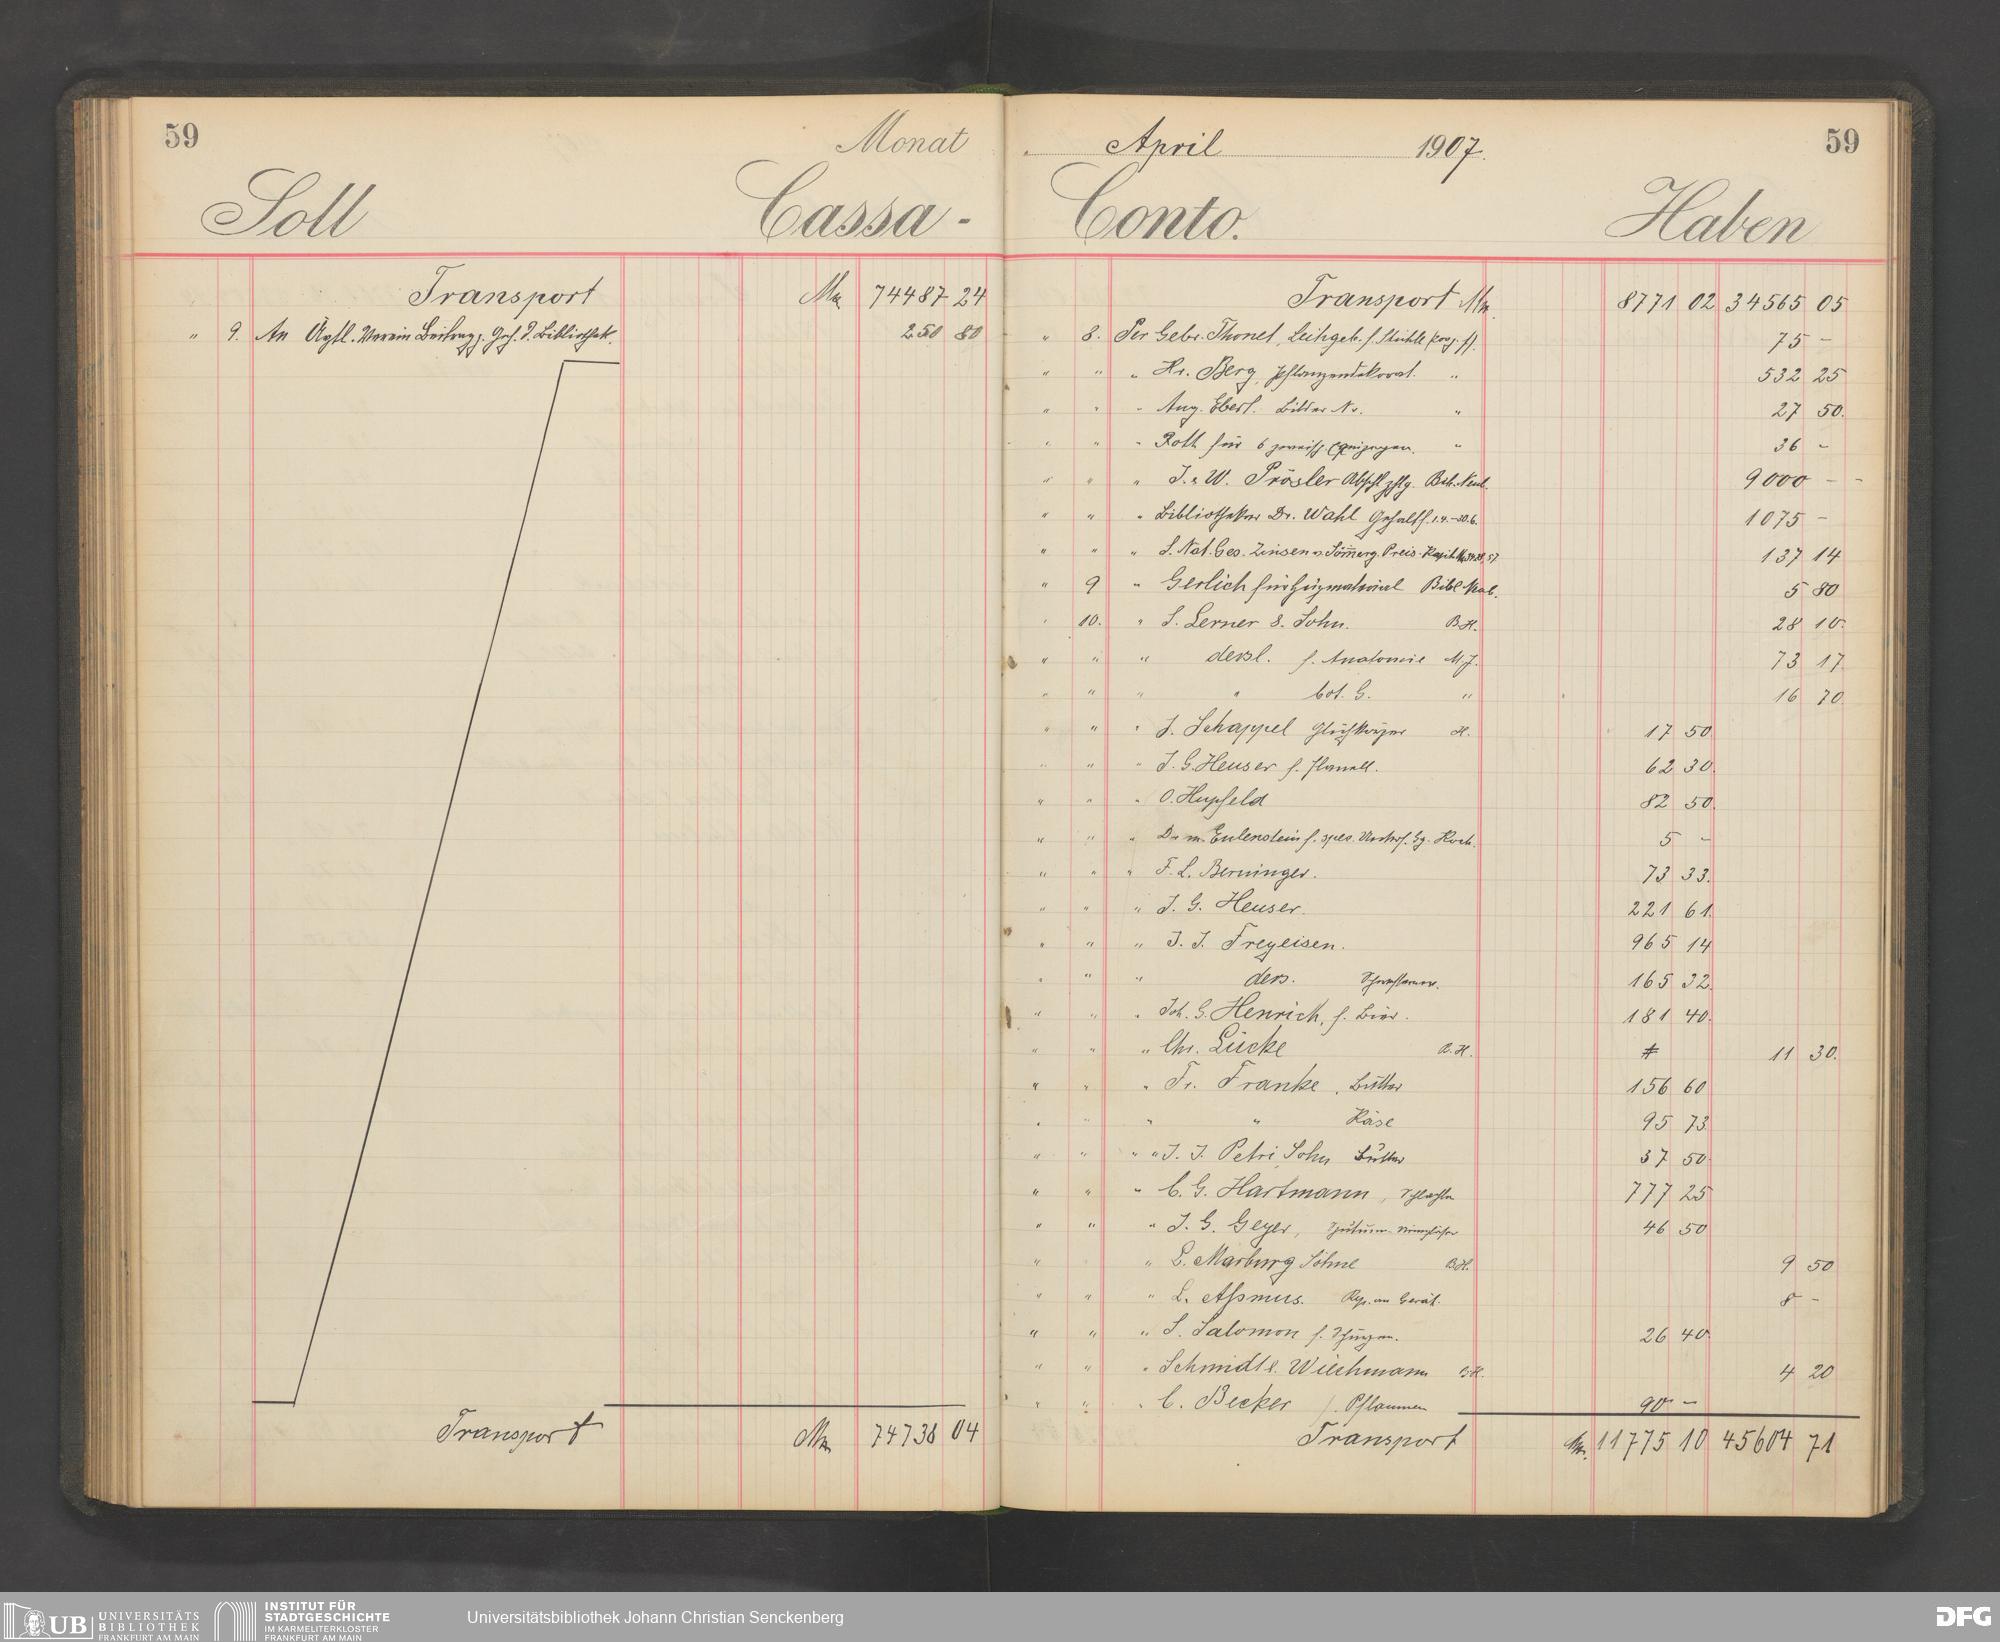 59
Monat
Soll Cassa-
Transport M. 74487 24
" 9. An Ärztl. Verein Beitrag z. Geh. d. Bibliothek. 250 80
Transport M. 74738 04
April 1907.
59
Conto. Haben
Transport M. 8771 02 34565 05
" 8. Per Gebr. Thonet, Leihgeb. f. Stühle 75 –
" " " Hr. Berg, Pflanzendekorat. " 532 25
" " " Aug. Ebert. Bilder " 27 50.
" " " Roth für 6 " 36 –
" " " J. & W. Prösler Abschl. zhlg. Bib. Neub. 9000 – –
" " " Bibliothekar Dr. Wahl Gehalt f. 1.4.–30.6. 1075 –
" " " S. Nat. Ges. Zinsen Sömmerg. Preis. 137 14
" 9 " Gerlich für Bibl. 5 80
" 10. " S. Lerner & Sohn. B.H. 28 10.
" " " dersl. f. Anatomie M.J. 73 17
" " " " bot. G. " 16 70.
" " " J. Schappel Glühkörper H. 17 50.
" " " J. G. Heuser f. Flanell. 62 30.
" " " O. Hupfeld 82 50.
" " " Dr. m. Eulenstein f. spez. Koch. 5 –
" " " F. L. Berninger. 73 33.
" " " J. G. Heuser. 221 61.
" " " J. J. Freyeisen. 965 14
" " " ders. 165 32.
" " " Joh. G. Henrich, f. Bier. 181 40.
" " " Chr. Lücke B.H. 11 30.
" " " Fr. Franke, Butter 156 60
" " " " Käse 95 73.
" " " " J. J. Petri Sohn Butter 37 50.
" " " C. G. Hartmann, 777 25
" " " J. G. Geyer, 46 50
" " E. Marburg Söhne B.H. 9 50
" " " L. Aßmus. Rep. an Gerät. 8 –
" " " S. Salomon f. 26 40.
" " " Schmidt & Wiechmann B.H. 4 20
" " " C. Becker f. Pflaumen 90 –
Transport M. 11775 10 45604 71
UB UNIVERSITÄTS
BIBLIOTHEK
FRANKFURT AM MAIN
INSTITUT FÜR
STADTGESCHICHTE
IM KARMELITERKLOSTER
FRANKFURT AM MAIN
Universitätsbibliothek Johann Christian Senckenberg
DFG